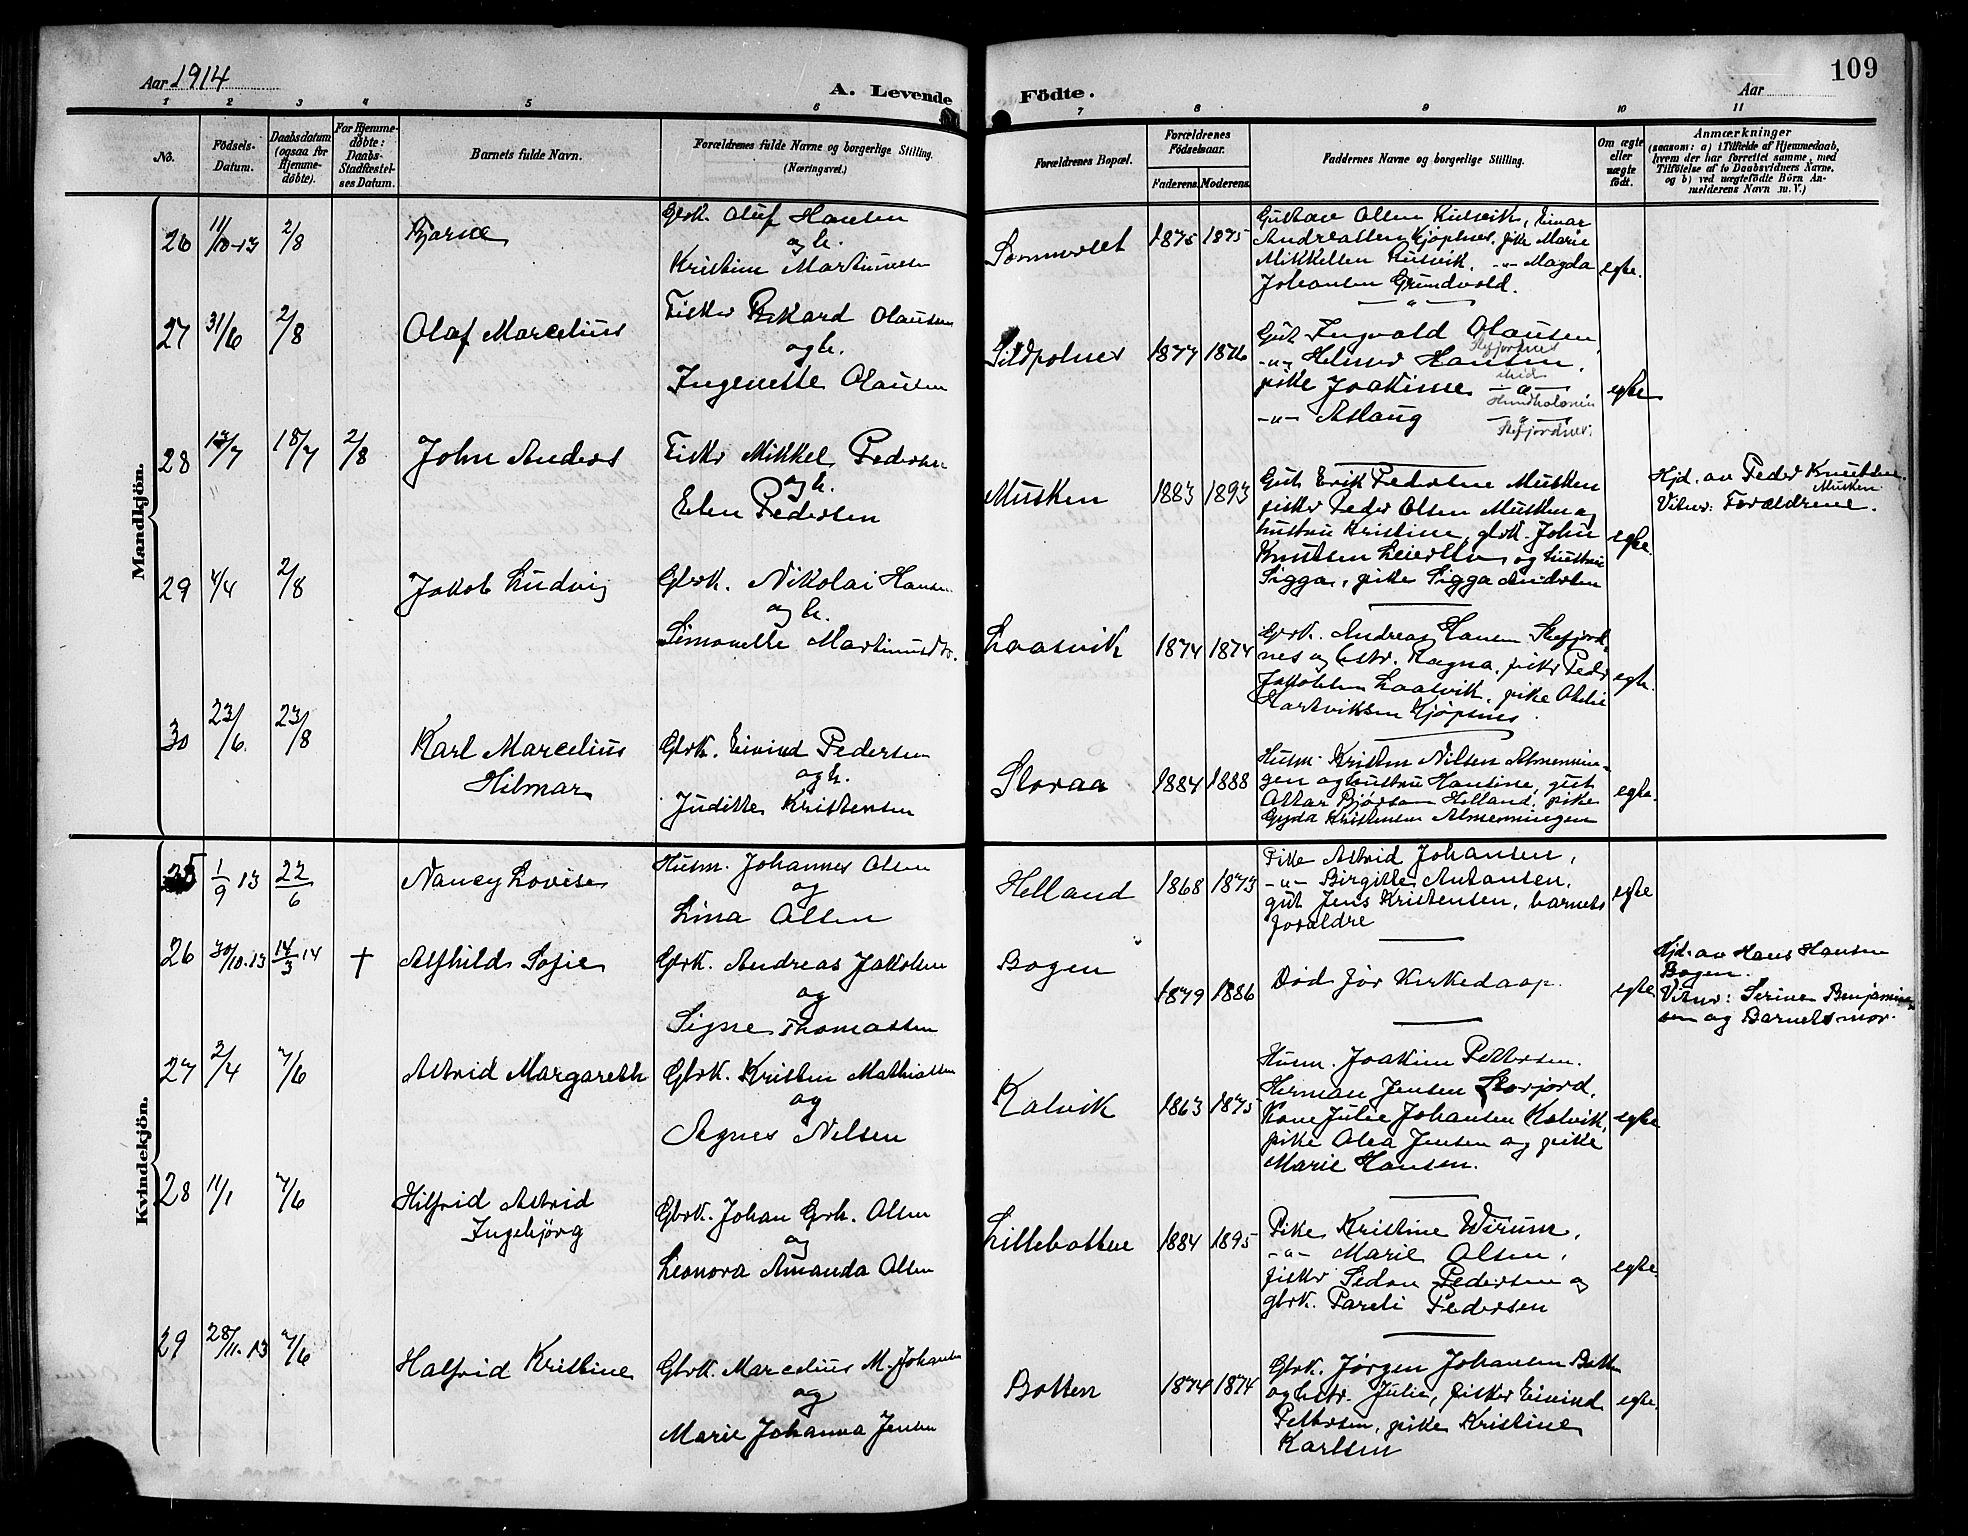 Aar 1914
A. Levende
Födte.
Aar
109
1 2 3 4 5 6 7 8 9 10 11
No.
Födsels-
Datum.
Daabsdatum
(ogsaa for
Hjemme-
döbte).
For Hjemme-
döbte:
Daabs-
Stadfæstel-
ses Datum.
Barnets fulde Navn.
Forældrenes fulde Navne og borgerlige Stilling.
(Næringsvei.)
Forældrenes Bopæl.
Forældrenes
Födselsaar.
Faderens. Moderens.
Faddernes Navne og borgerlige Stilling.
Om ægte
eller
uægte
födt.
Anmærkninger
(saasom: a) i Tilfælde af Hjemmedaab,
hvem der har forrettet samme, med
Tilföielse af to Daabsvidners Navne,
og b) ved uægtefödte Börn An-
melderens Navn m. V.)
Mandkjön.
26 11/10-13 2/8 Bjarne
Gbrk. Oluf Hansen
og h.
Kristine Martinussen
1875 1875
Gustav Olsen Kulsvik, Einar
Andreassen Kjøpsnes, pike Marie
Mikkelsen Kulsvik, -"- Magda
Johansen Grundvold.
egte.
27 31/6 2/8 Olaf Marcelius
Fisker Rikard Olausen
og h.
Ingenette Olausen
Sildpolnes 1877 1876
Gut Ingvald Olausen
-"- Helmer Hansen,
pike Joakime -"-
-"- Aslaug
egte
28 13/7 18/7 2/8 John Anders
Fisker Mikkel Pedersen
og h.
Elen Pedersen
Musken 1883 1893
Gut Erik Pedersen Musken
fisker Peder Olsen Musken og
hustru Kristine, gbrk. John
Knutsen og hustru
Sigga, pike Sigga Andersen
egte.
Hjd. av Peder Knutsen
Musken
Vitner: Forældrene.
29 4/4 2/8 Jakob Ludvig
Gbrk. Nikolai Hansen
og h.
Simonette Martinusdtr.
Laasvik 1874 1874
Gbrk. Andreas Hansen Skefjord-
nes og hstr. Ragna, fisker Peder
Jakobsen Laasvik, pike
Hartviksen Kjøpsnes
egte.
30 23/6. 23/8 Karl Marcelius
Hilmar
Gbrk. Eivind Pedersen
og h.
Juditte Kristensen
Storaa 1884 1888
Husm. Kristen Nilsen Almennin-
gen og hustru Hansine, gut
Ottar Bjørsom Helland, pike
Gyda Kristensen Almenningen
egte.
Kvindekjön.
25 1/9 13 22/6 Nancy Lovise
Husm. Johannes Olsen
og
Lina Olsen
Helland 1868 1873
Pike Astrid Johansen,
-"- Birgitte Antonsen,
gut Jens Kristensen, barnets
forældre
egte
26 30/10-13 14/3 14 † Alfhild Sofie
Gbrk. Andreas Jakobsen
og
Signe Thomassen
Bogen 1879 1886
Død før Kirkedaap.
egte
Hjd. av Hans Hansen
Bogen.
Vitner: Serine Benjamin-
sen og Barnets mor.
27 2/4 7/6 Astrid Margareth
Gbrk. Kristen Mathiassen
og
Agnes Nilsen
Kalvik 1863 1875
Husm. Joakim Pettersen.
Herman Jensen Storjord,
Kone Julie Johansen Kalvik,
pike Olea Jensen og pike
Marie Hansen.
egte
28 11/1 7/6 Hilfrid Astrid
Ingebjørg
Gbrk. Johan Grh. Olsen
og
Leonora Amanda Olsen
Lillebotten 1884 1895
Pike Kristine Wirum,
-"- Marie Olsen,
fisker Sedon Pedersen og
gbrk. Pareli Pedersen
egte.
29 28/11-13 7/6 Halfrid Kristine
Gbrk. Marcelius M. Johansen
og
Marie Johanna Jensen
Botten 1874 1874
Gbrk. Jørgen Johansen Botten
og hstr. Julie, fisker Eivind
Pettersen, pike Kristine
Karlsen
egte.